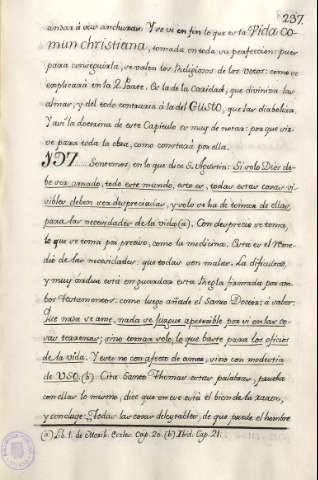 237.
andar à vivir anchuras. Y se vè en fin lo que es la Vida Co-
mun christiana, tomada en toda su perfeccion: pues
para conseguirla, se valen los Religiosos de los Votos: como se
explicarà en la 2. Parte. Es la de la Caridad, que diviniza las
almas; y del todo contraria à la del GUSTO, que las diaboliza.
Y asi la doctrina de este Capitulo es muy de notar: por que sir-
ve para toda la obra, como constarà por ella.
107. Sentemos, en lo que dice S. Agustin: Si solo Dios de-
be ser amado, todo este mundo, esto es, todas estas cosas vi-
sibles deben ser despreciadas, y solo se ha de tomar de ellas
para las necesidades de la vida (a). Con desprecio se toma,
lo que se toma por preciso, como la medicina. Este es el Reme-
dio de las necesidades: que todas son males. La dificultad,
y muy ardua està en guardar esta Regla firmada por am-
bos Testamentos: como luego añade el Santo Doctor: à saber:
Que nada se ame, nada se juzgue apetecible por sì en las co-
sas terrenas; sino tomar solo, lo que baste para los oficios
de la vida. Y esto no con afecto de amor, sino con modestia
de USO. (b) Cita Santo Thomas estas palabras, prueba
con ellas lo mismo, dice que en eso està el bien de la razon,
y concluye: Todas las cosas deleytables, de que puede el hombre
(a) Lib. 1. de Morib. Eccles. Cap. 20. (b) Ibid. Cap. 21.